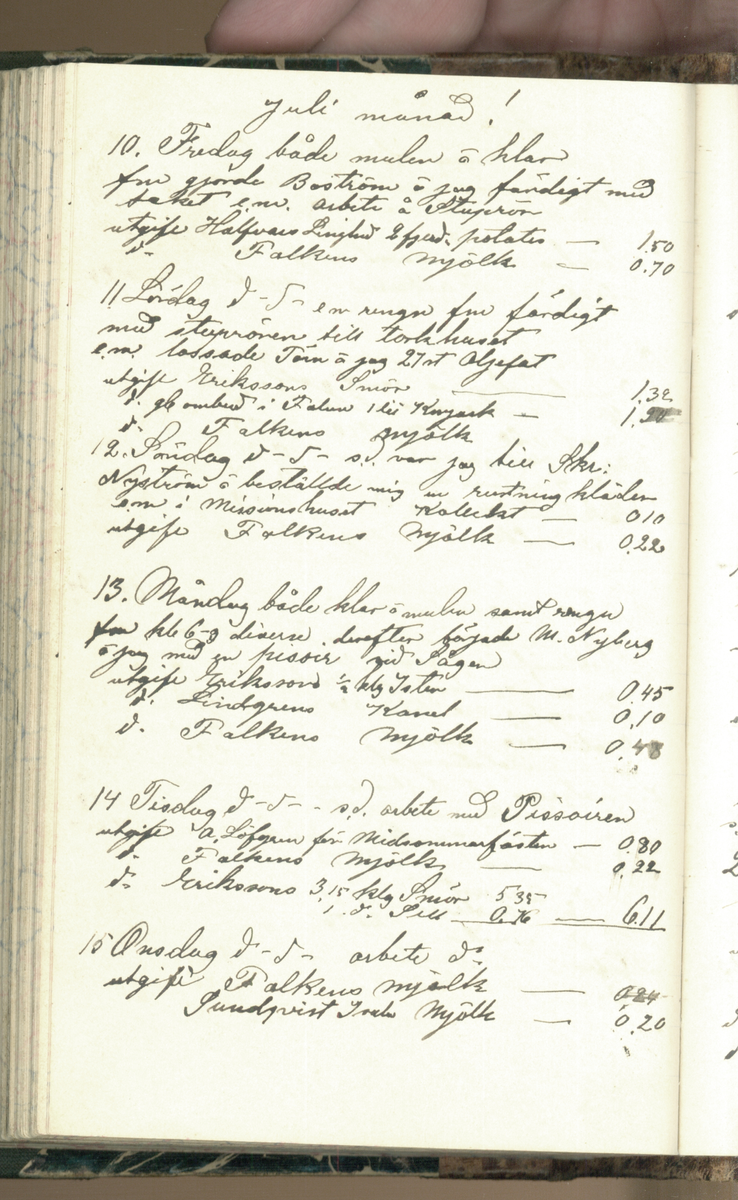 Juli månad!
10. Fredag både mulen ö klar
fm gjorde Boström ö jag färdigt med
taket e.m. arbete å Stuprör
utgift Halfvars 2 fjerd. potates — 1.50
d- Falkens Mjölk — 0.70
11 Lördag d-d- em regn fm färdigt
med stuprören till torkhuset
e.m. lossade Törn ö jag 27 st Oljefat
utgift Erikssons Smör — 1.32
d. ombud i Falun 1 lit Konjack — 1.
d- Falkens Mjölk
12. Söndag d-d- s.d. var jag till Skr:
Nyström ö beställde mig en kläder
em i Missionshuset Kollekt — 010
utgift Falkens Mjölk — 0.22
13. Måndag både klar ö mulen samt regn
fm kl 6-9 diverse. derefter började M. Nyberg
ö jag med en pissoir vid Sågen
utgift Erikssons ½ klg Ister — 0.45
d. Lindgrens Kanel — 0.10
d. Falkens Mjölk — 0.48
14 Tisdag d-d- - s.d. arbete med Pissoiren
utgift A. Löfgren för Midsommarfästen — 0.80
d- Falkens Mjölk — 0.22
d- Erikssons 3.15 klg Smör 5 35
1 d. Sill 0.76 — 6.11
15 Onsdag d-d- arbete d:
utgift Falkens Mjölk — 0.24
Sundqvist Mjölk — 0.20